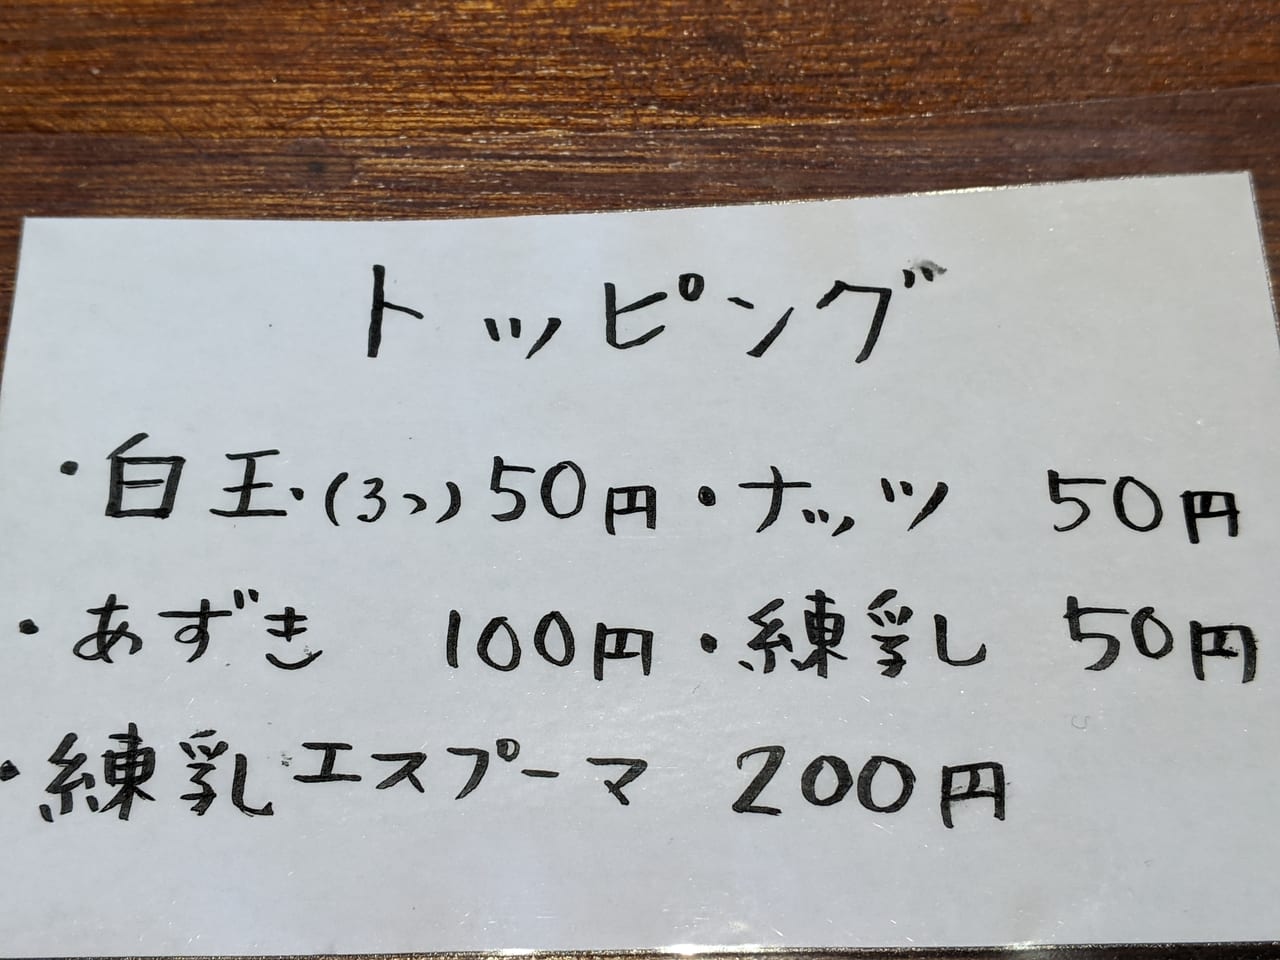 トッピング
・白玉(3つ)50円・ナッツ 50円
・あずき 100円・練乳 50円
・練乳エスプーマ 200円